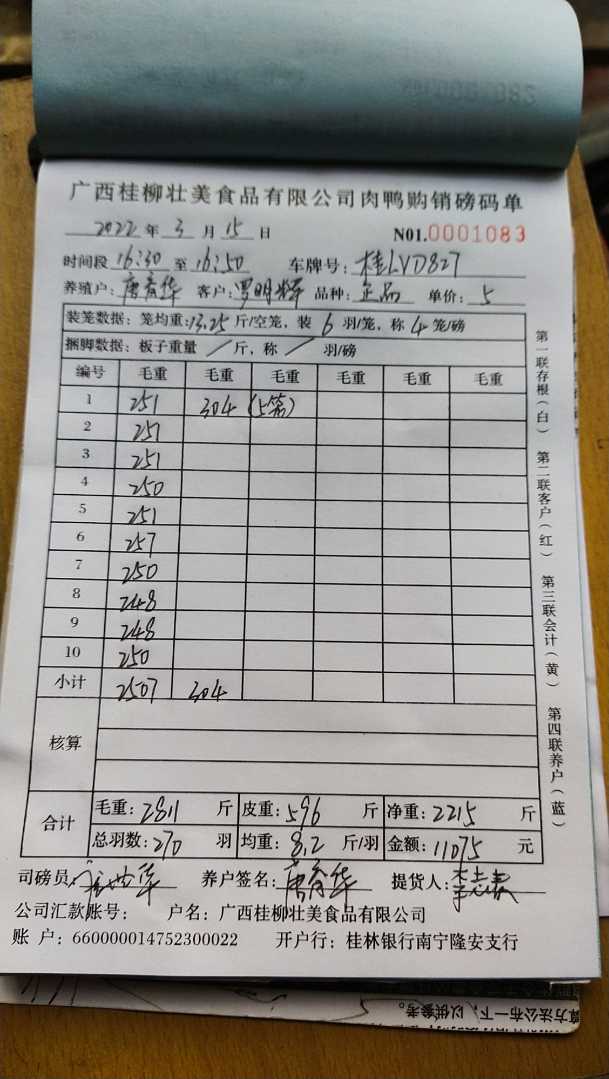 广西桂柳壮美食品有限公司肉鸭购销磅码单
2022 年 3 月 15 日 N01.0001083
时间段 16:30 至 16:50 车牌号: 桂LVD827
养殖户: 唐育华 客户: 罗明辉 品种: 正品 单价: 5
装笼数据: 笼均重: 13.25 斤/空笼, 装 6 羽/笼, 称 4 笼/磅
捆脚数据: 板子重量 / 斤, 称 / 羽/磅
编号 毛重 毛重 毛重 毛重 毛重 毛重
1 251 304 (5笼)
2 251
3 251
4 250
5 251
6 257
7 250
8 248
9 248
10 250
小计 2507 304
核算
合计 毛重: 2811 斤 皮重: 596 斤 净重: 2215 斤
总羽数: 270 羽 均重: 8.2 斤/羽 金额: 11075 元
司磅员: 养户签名: 唐育华 提货人:
公司汇款账号: 户名: 广西桂柳壮美食品有限公司
账 户: 660000014752300022 开户行: 桂林银行南宁隆安支行
第一联存根(白) 第二联客户(红) 第三联会计(黄) 第四联养户(蓝)
算方法公布一下, 以供参考。